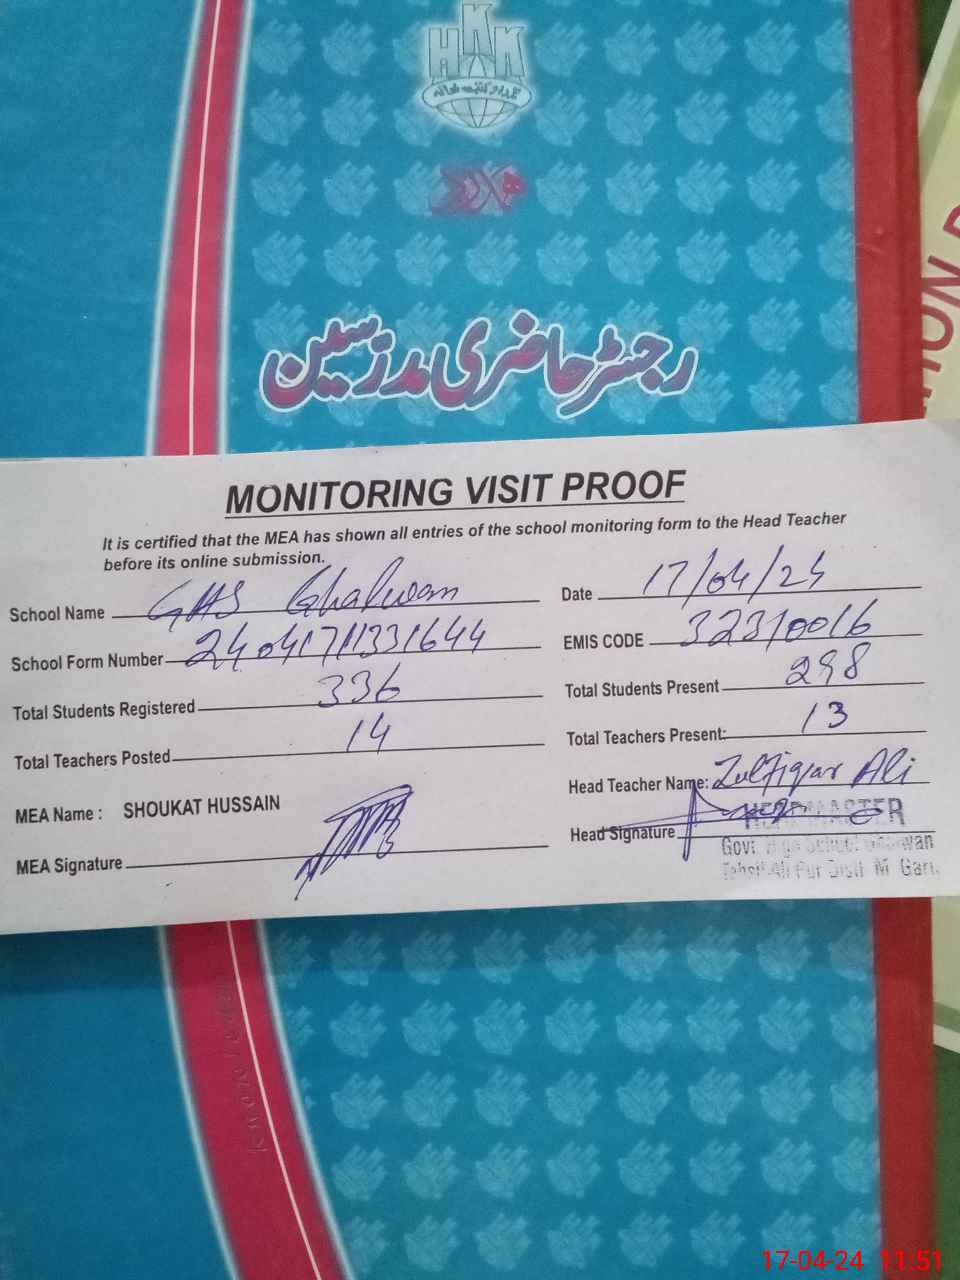 HKK
رجسٹر حاضری مدرسین
MONITORING VISIT PROOF
It is certified that the MEA has shown all entries of the school monitoring form to the Head Teacher
before its online submission.
School Name GHS Ghalwan
Date 17/04/24
School Form Number 24041711331644
EMIS CODE 32310016
Total Students Registered 336
Total Students Present 298
Total Teachers Posted 14
Total Teachers Present: 13
MEA Name : SHOUKAT HUSSAIN
Head Teacher Name: Zulfiqar Ali
MEA Signature
Head Signature
HEADMASTER
Govt High School
Tehsil Ali Pur Distt M Garh
17-04-24 11:51